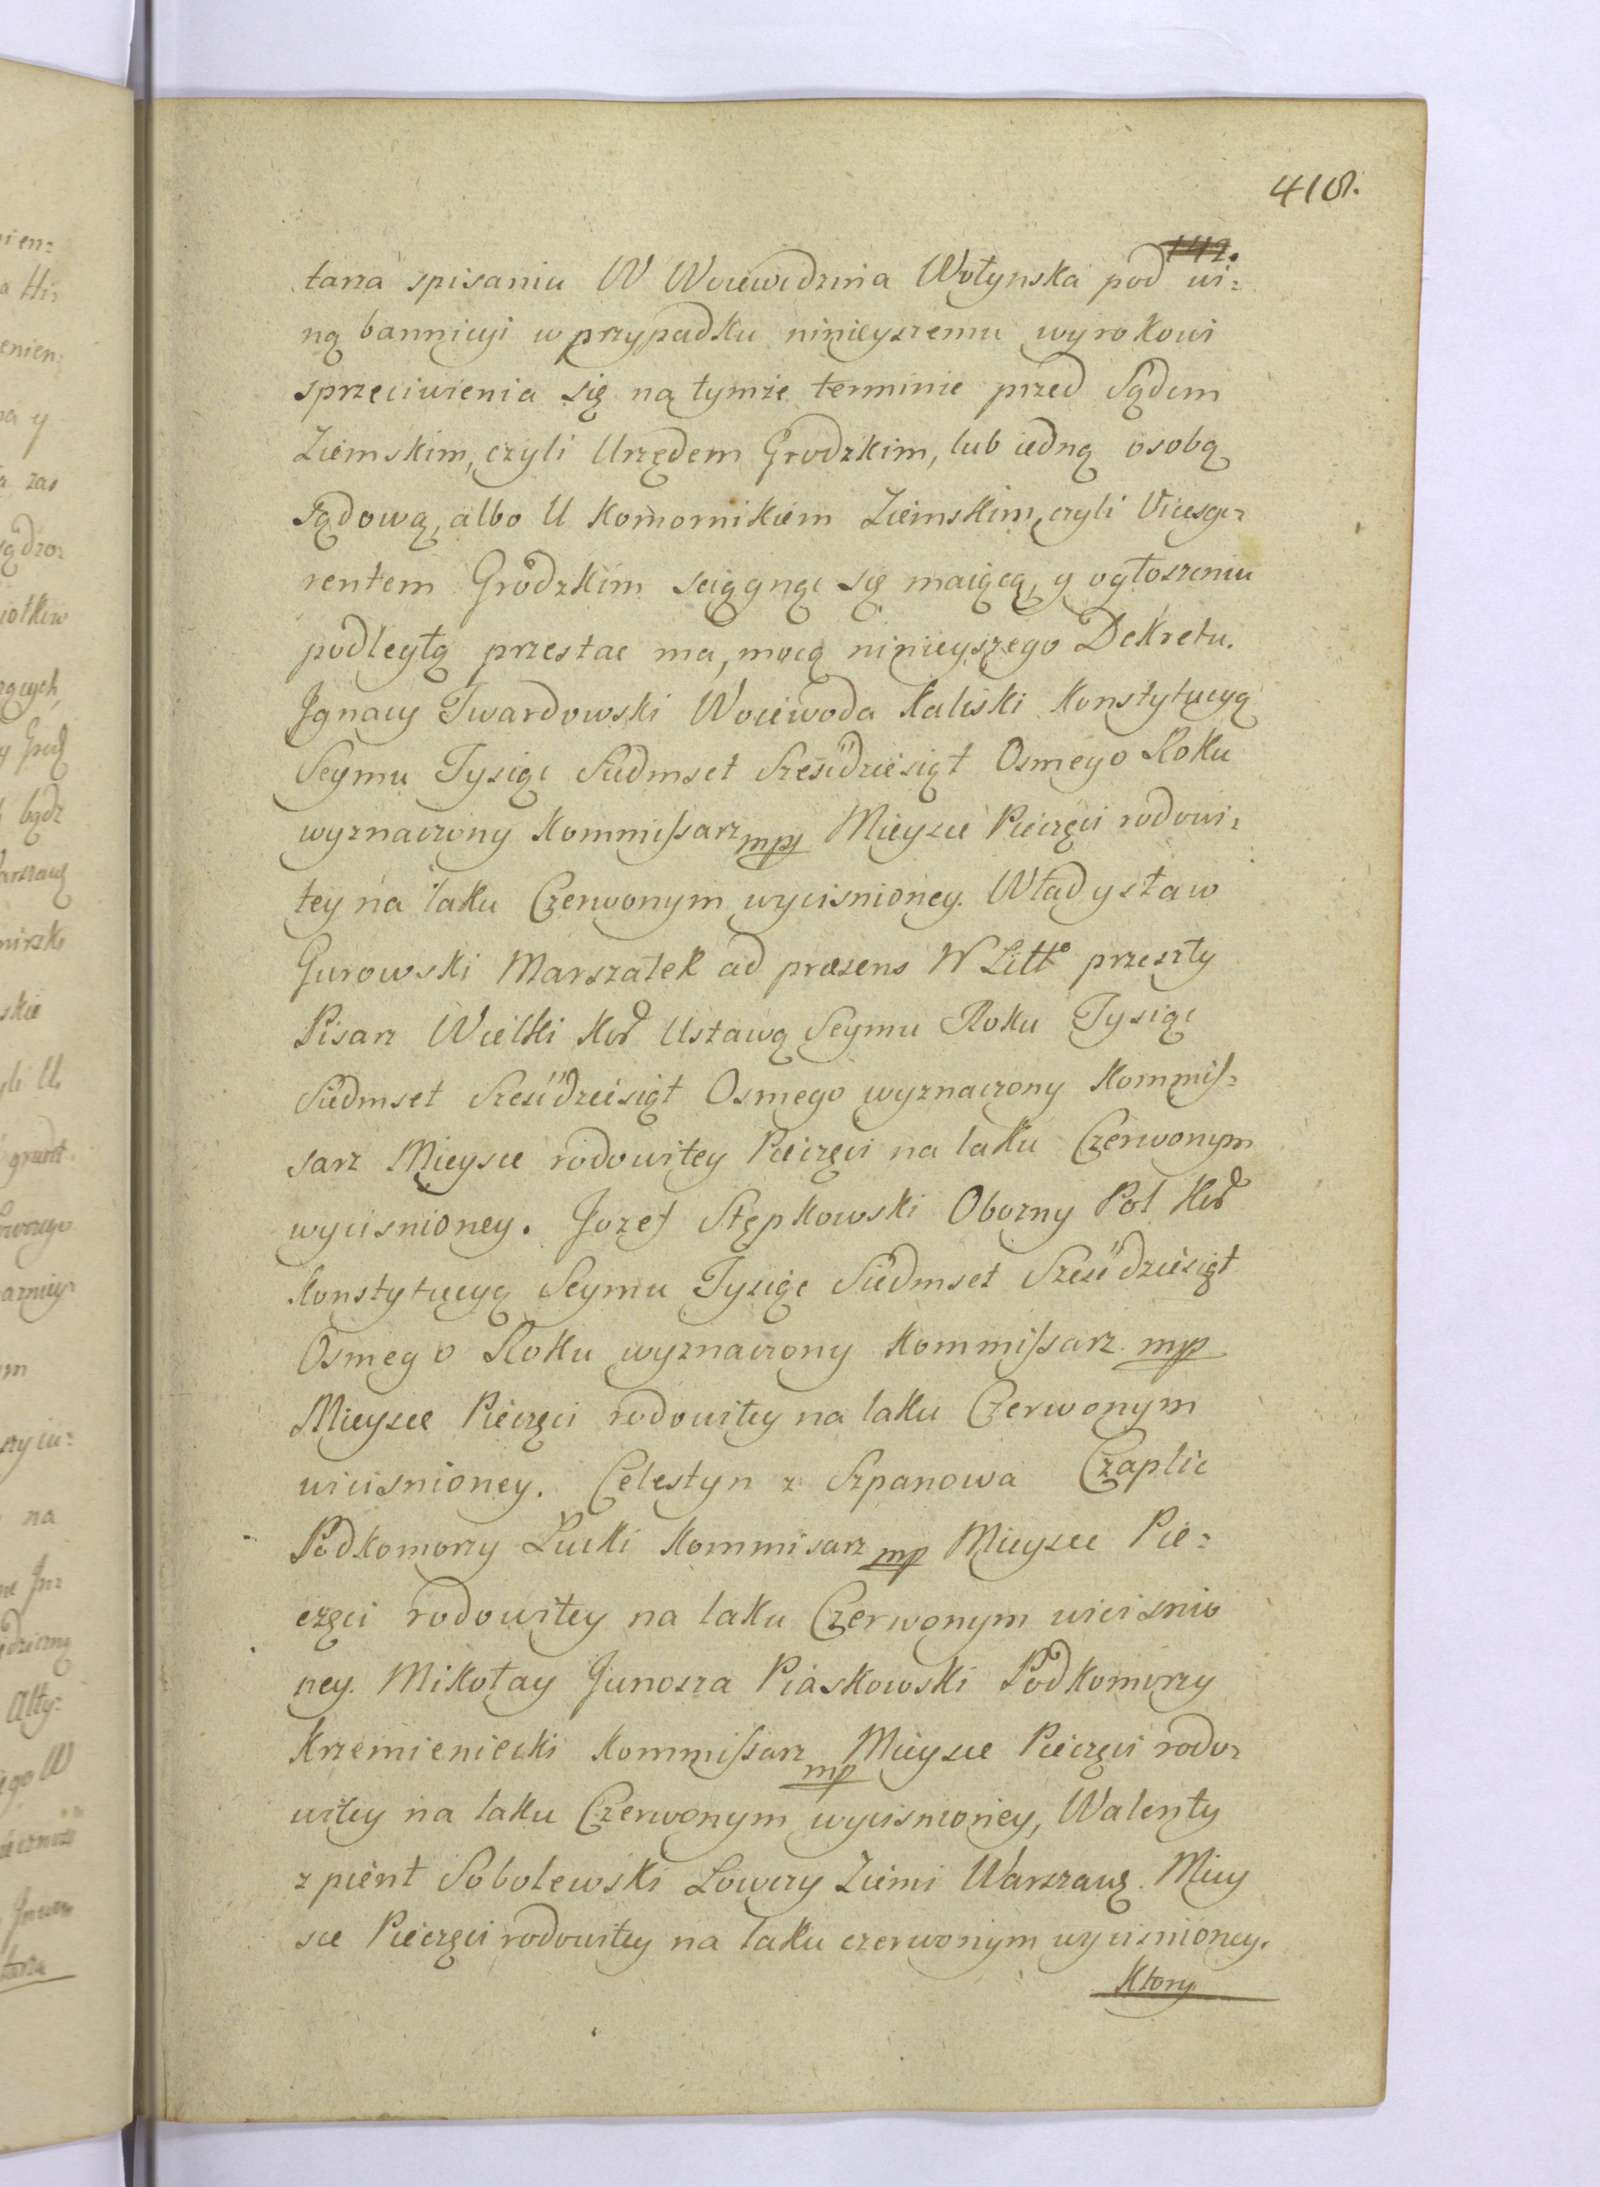 418.
142.
tarza spisaniu W Woiewodzina Wołynska pod wi=
ną bannicyi w przypadku ninieyszemu wyrokowi
sprzeciwienia się na tymże terminie przed Sądem
Ziemskim, czyli Urzędem Grodzkim, lub iedną osobą
sądową, albo U Komornikiem Ziemskim, czyli Vicesge=
rentem Grodzkim sciągnąc się maiącą, y ogłoszeniu
podległą przestac ma, mocą ninieyszego Dekretu.
Jgnacy Twardowski Woiewoda Kaliski Konstytucyą
Seymu Tysiąc Siedmset Sześcdziesiąt Osmego Roku
wyznaczony Kommissarz mp Mieysce Pieczęci rodowi=
tey na laku Czerwonym wycisnioney. Władysław
Gurowski Marszałek ad præsens W Litt° przeszły
Pisarz Wielki Kor Ustawą Seymu Roku Tysiąc
Siedmset Sześcdziesiąt Osmego wyznaczony Kommis=
sarz Mieysce rodowitey Pieczęci na laku Czerwonym
wycisnioney. Jozef Stępkowski Obozny Pol Kor
Konstytucyą Seymu Tysiąc Siedmset Sześcdziesiąt
Osmego Roku wyznaczony Kommissarz mp
Mieysce Pieczęci rodowitey na laku Czerwonym
wicisnioney. Celestyn z Szpanowa Czaplic
Podkomorzy Łucki Kommisarz mp Mieysce Pie=
częci rodowitey na laku Czerwonym wicisnio
ney. Mikołay Junosza Piaskowski Podkomorzy
Krzemieniecki Kommissarz mp Mieysce Pieczęci rodo=
witey na laku Czerwonym wycisnioney, Walenty
z pient Sobolewski Łowczy Ziemi Warszaws. Miey
sce Pieczęci rodowitey na laku czerwonym wycisnioney.
Ktory